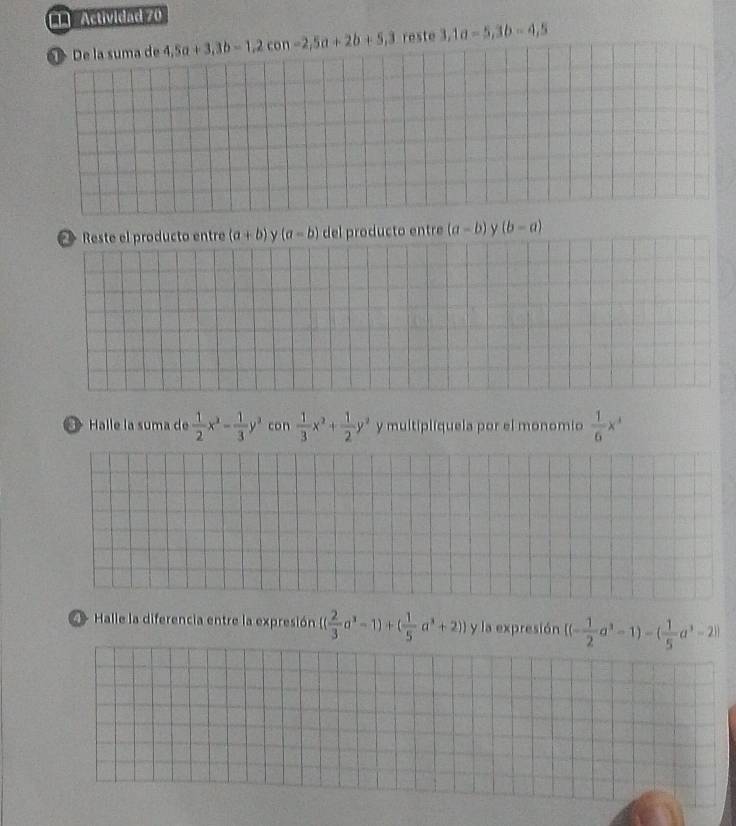 Actividad 70
1 De la suma de 4,5a + 3,3b − 1,2 con −2,5a + 2b + 5,3 reste 3,1a − 5,3b − 4,5
2 Reste el producto entre (a + b) y (a − b) del producto entre (a − b) y (b − a)
3 Halle la suma de 1/2 x² − 1/3 y² con 1/3 x² + 1/2 y² y multiplíquela por el monomio 1/6 x³
4 Halle la diferencia entre la expresión ((2/3 a³ − 1) + (1/5 a³ + 2)) y la expresión ((−1/2 a³ − 1) − (1/5 a³ − 2))